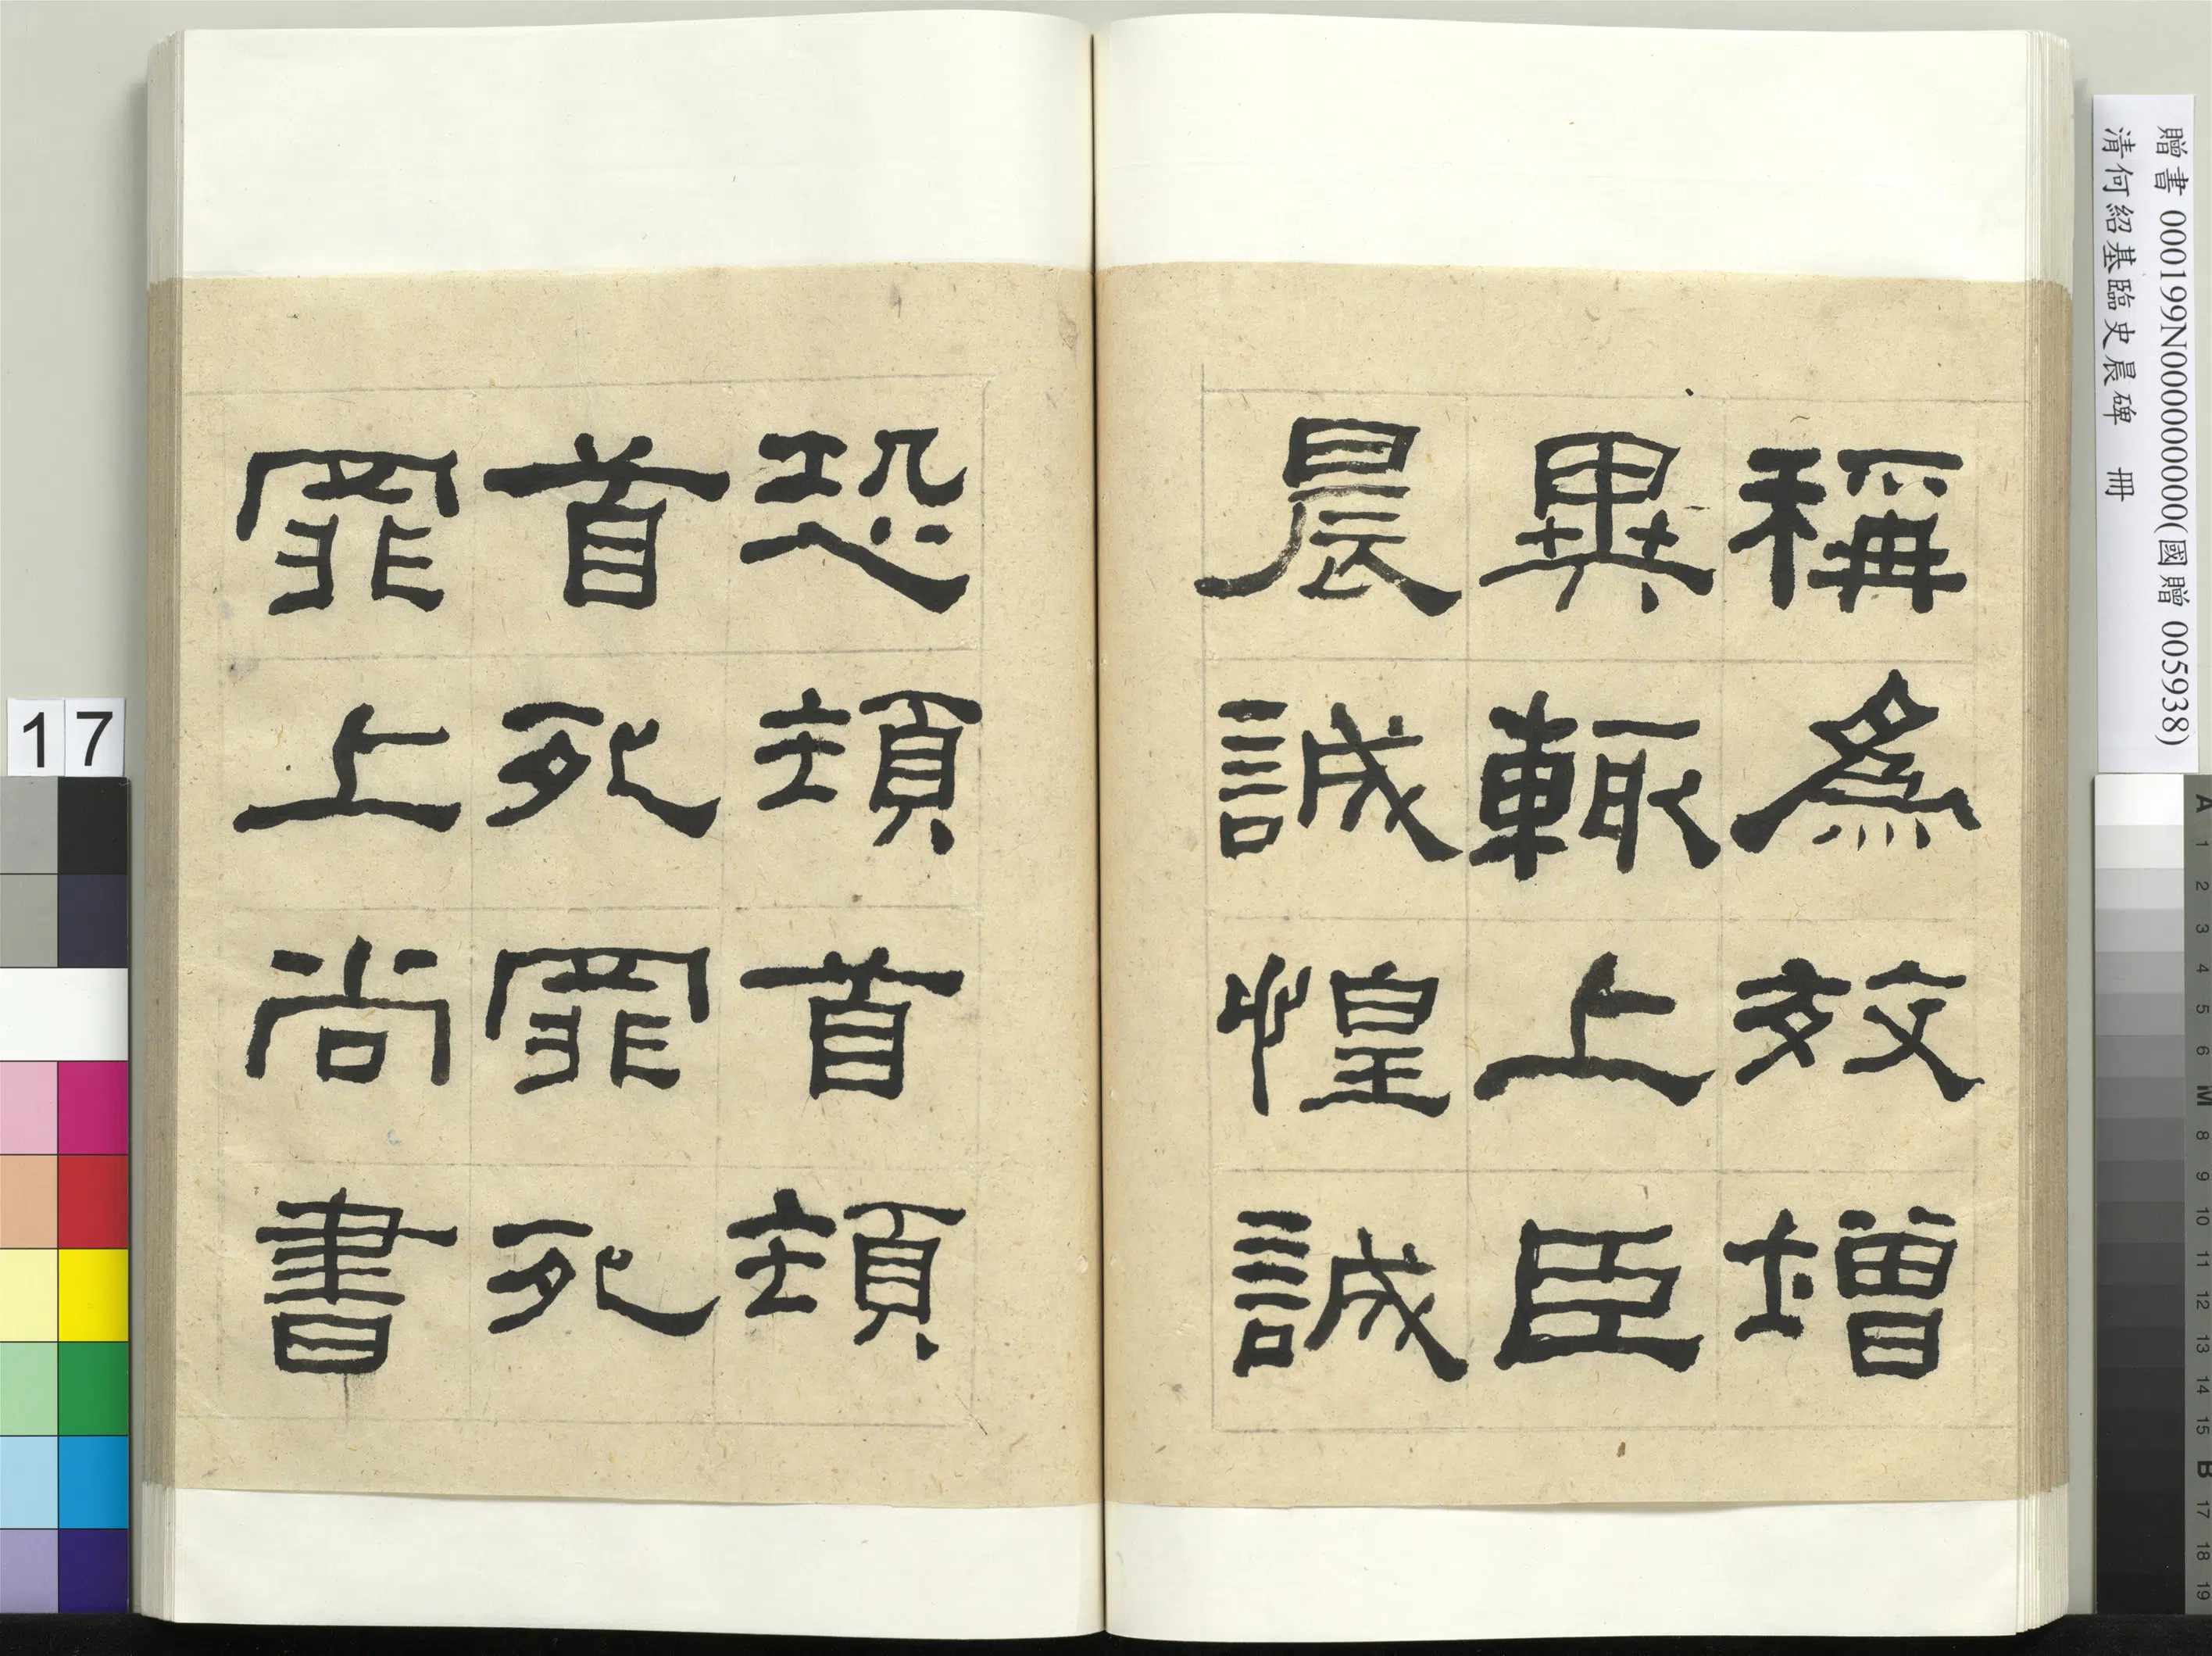 稱為效增
異輒上臣
晨誠惶誠
恐頓首頓
首死罪死
罪上尚書
贈書 000199N000000000(國贈 005938)
清何紹基臨史晨碑 冊
17
A 1 2 3 4 5 6 M 8 9 10 11 12 13 14 15 B 17 18 19